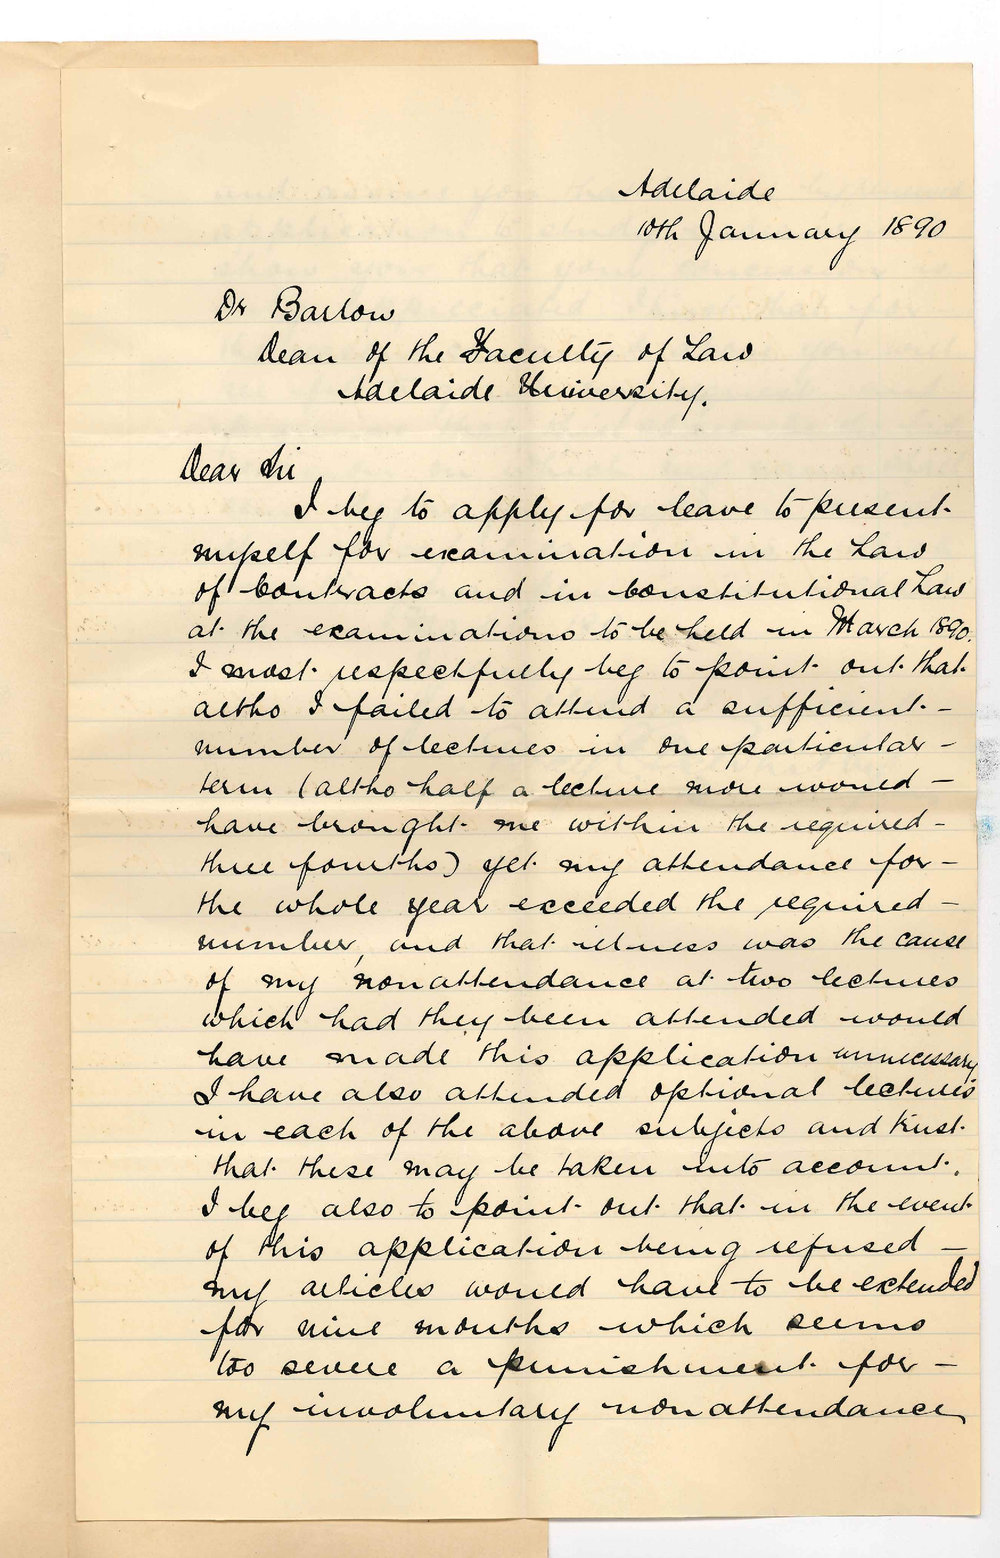 Adelaide
10th January 1890
Dr Barlow
Dean of the Faculty of Law
Adelaide University.
Dear Sir
I beg to apply for leave to present
myself for examination in the Law
of Contracts and in Constitutional Law
at the examinations to be held in March 1890.
I most respectfully beg to point out that
altho I failed to attend a sufficient –
number of lectures in one particular –
term (altho half a lecture more would –
have brought me within the required –
three fourths) yet my attendance for –
the whole year exceeded the required –
number, and that illness was the cause
of my nonattendance at two lectures
which had they been attended would
have made this application unnecessary
I have also attended optional lectures
in each of the above subjects and trust
that these may be taken into account.
I beg also to point out that in the event
of this application being refused –
my articles would have to be extended
for nine months which seems
too severe a punishment for –
my involuntary nonattendance,